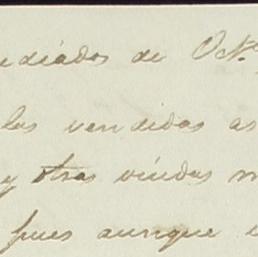 mediados de Oct.
las vendidas as
y otras viudas
pues aunque